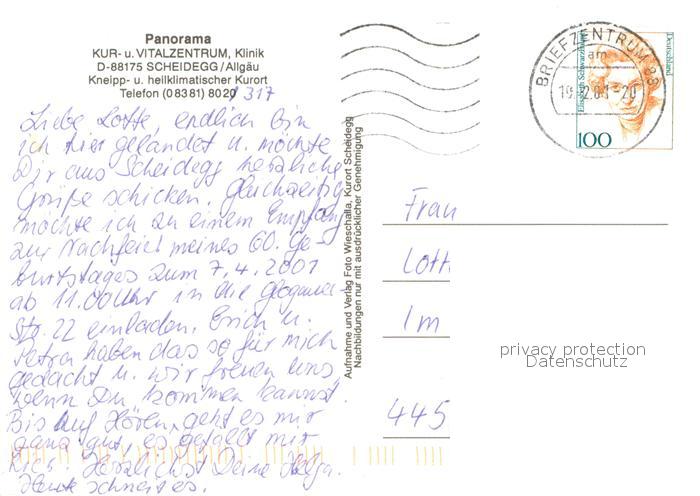 Panorama
KUR- u. VITALZENTRUM, Klinik
D-88175 SCHEIDEGG/Allgäu
Kneipp- u. heilklimatischer Kurort
Telefon (08381) 8020/317
Liebe Lotte, endlich bin
ich hier gelandet u. möchte
Dir aus Scheidegg herzliche
Grüße schicken. Gleichzeitig
möchte ich zu einem Empfang
zur Nachfeier meines 60. Ge-
burtstages zum 7.4.2001
ab 11.00 Uhr in die
Str. 22 einladen. Erich u.
Petra haben das so für mich
gedacht u. wir freuen uns
wenn Du kommen kannst.
Bis auf Hören, geht es mir
ganz gut, es gefällt mir
hier. Herzlichst Deine Helga.
Heute schneit es.
Aufnahme und Verlag Foto Wieschalla, Kurort Scheidegg
Nachbildungen nur mit ausdrücklicher Genehmigung
BRIEFZENTRUM 88
am
Elisabeth Schwarzhaupt
Deutschland
100
Frau
Lott
Im
445
privacy protection
Datenschutz